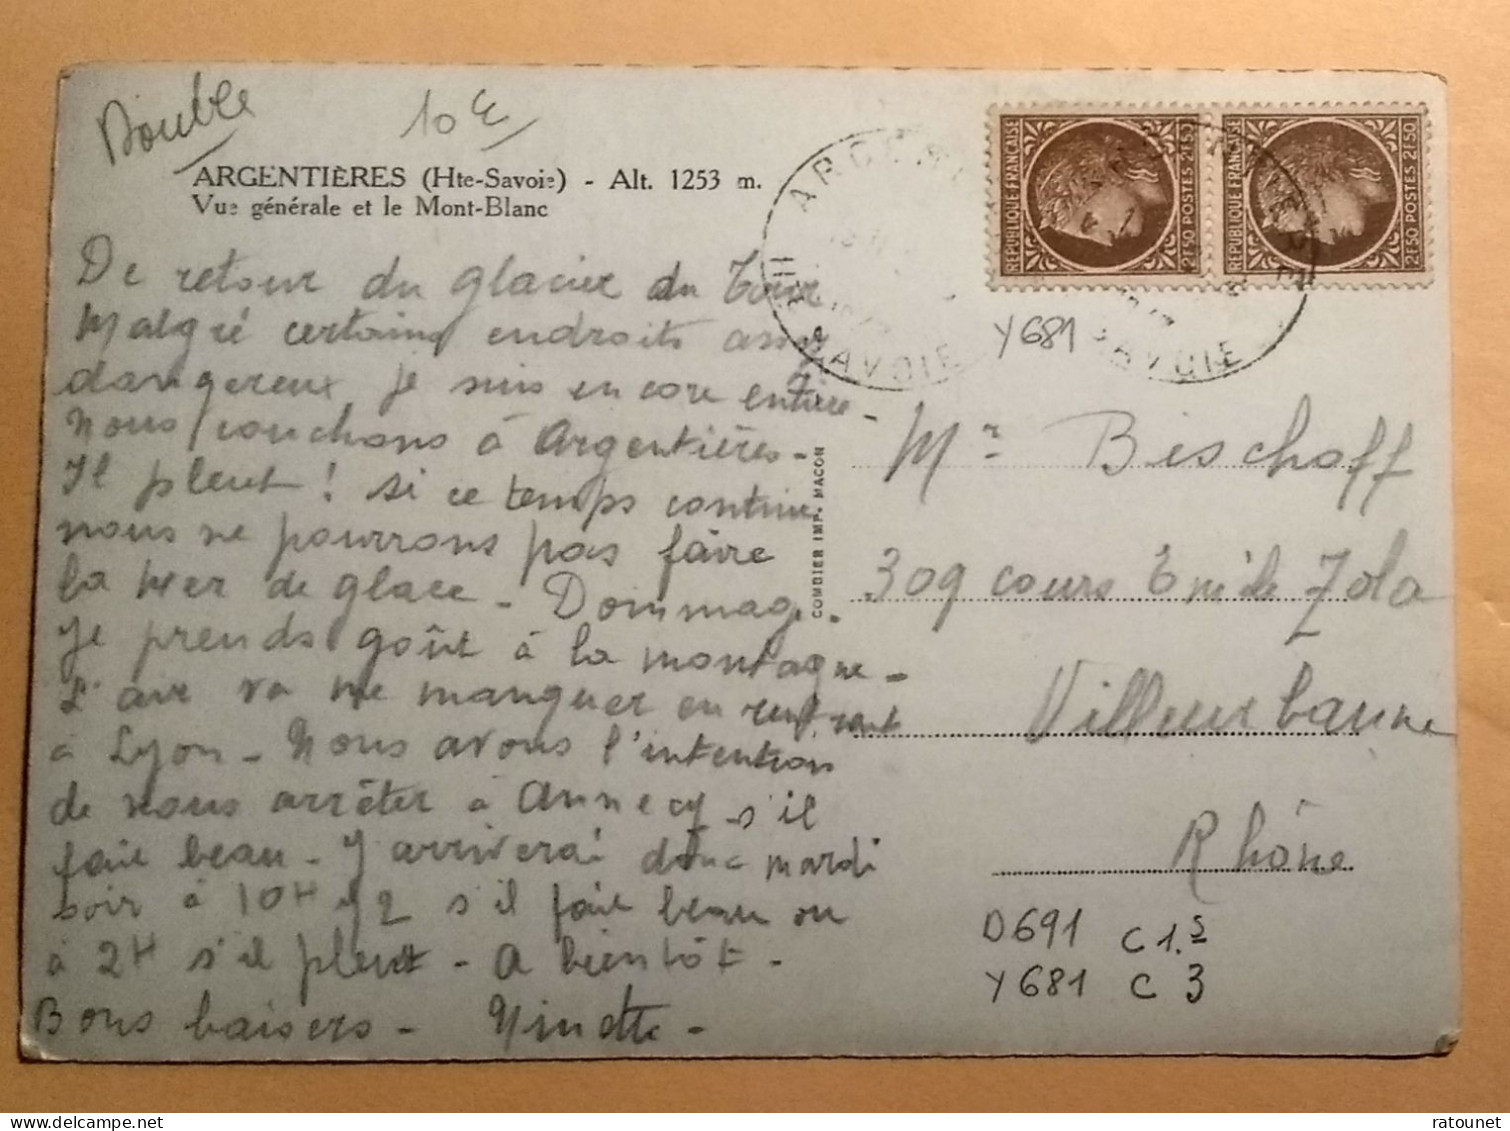 Double
10 €
ARGENTIÈRES (Hte-Savoie) - Alt. 1253 m.
Vue générale et le Mont-Blanc
De retour du glacier du Tour
Malgré certains endroits assez
dangereux je suis encore entière -
Nous couchons à Argentières -
Il pleut ! si ce temps continue
nous ne pourrons pas faire
la Mer de glace - Dommage -
Je prends goût à la montagne -
L'air va me manquer en rentrant
à Lyon - Nous avons l'intention
de nous arrêter à Annecy s'il
fait beau - J'arriverai donc mardi
soir à 10H 1/2 s'il fait beau ou
à 2H s'il pleut - A bientôt -
Bons baisers - Ninette -
COMBIER IMP. MACON
REPUBLIQUE FRANÇAISE
2F50 POSTES 2F50
REPUBLIQUE FRANÇAISE
2F50 POSTES 2F50
SAVOIE
SAVOIE
Y681
Mr Bischoff
309 cours Emile Zola
Villeurbanne
Rhône
D691 C 1.5
Y681 C 3
ratounet www.delcampe.net